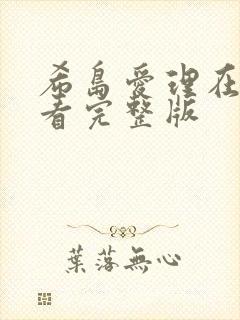 希島愛理在
看完整版
葉落無心